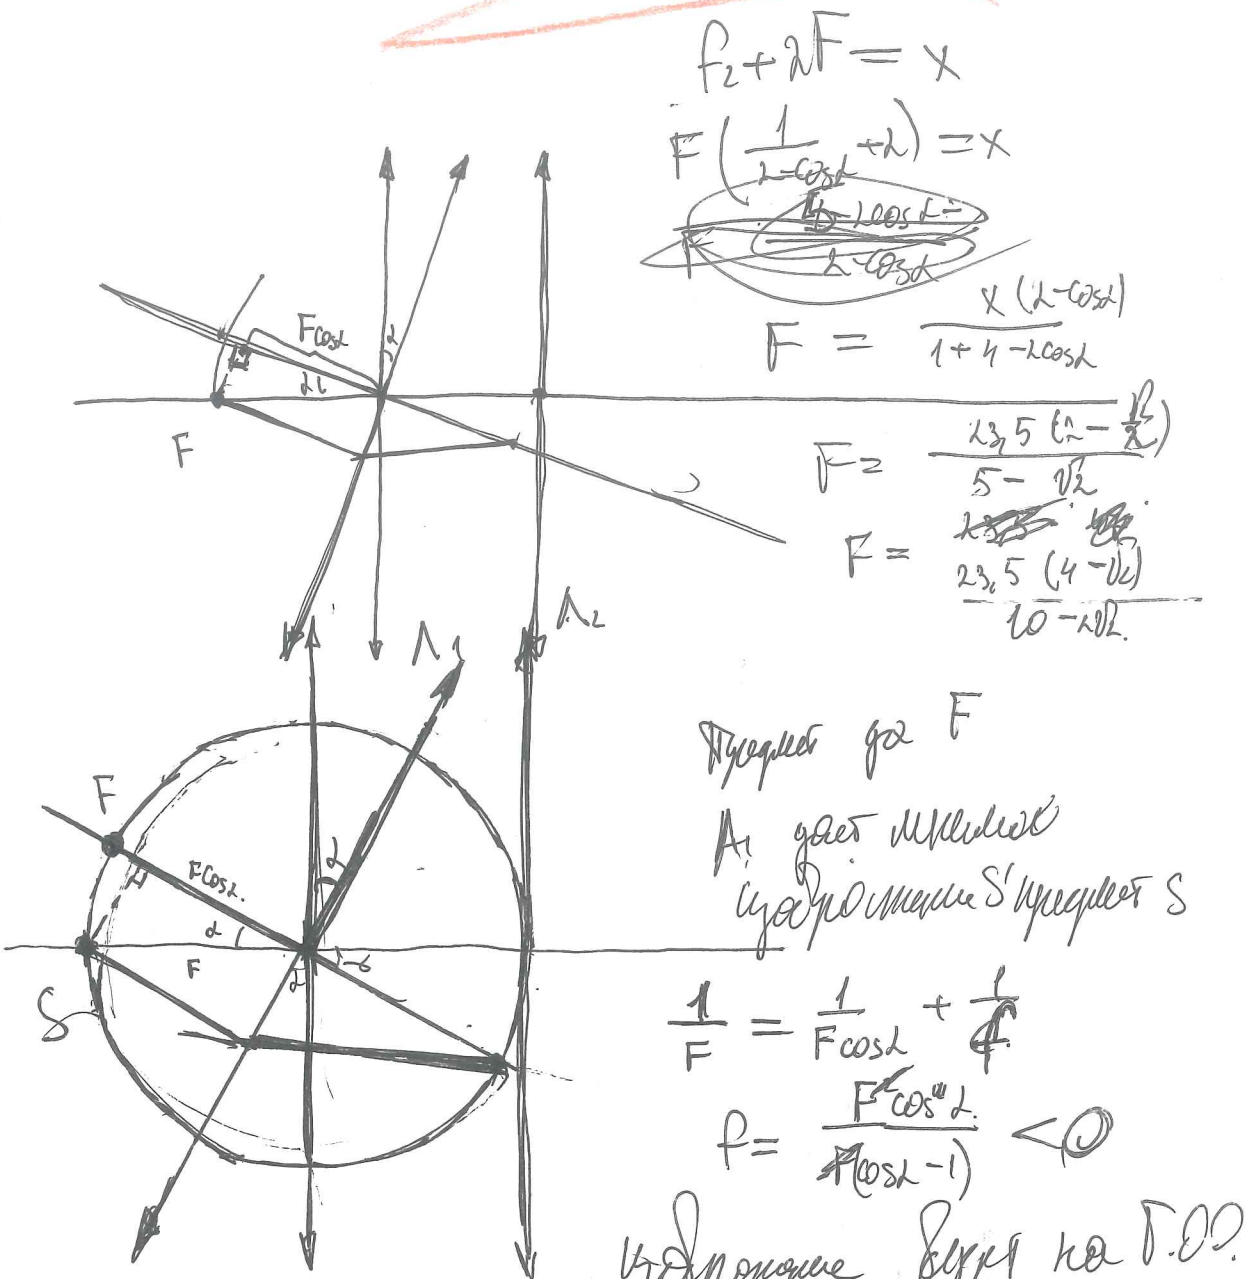 f₂ + 2F = x
F (1/(2-cosα) + 2) = x
F = x(2-cosα)/(1+4-2cosα)
F = 23,5 (2 - √2/2)/(5 - √2)
F = 23,5 (4 - √2)/(10 - 2√2)
Fcosα
α
F
Л₁
Л₂
Предмет до F
Л₁ даёт мнимое
изображение S' предмет S
1/F = 1/(Fcosα) + 1/f
f = F cosα/(cosα - 1) < 0
изображение будет на Г.О.О.
F
Fcosα
α
α
F
α
S